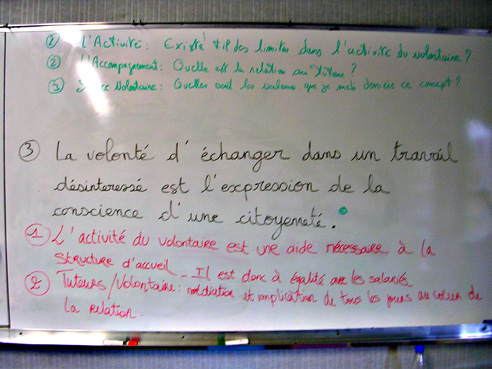 ① L'Activité : Existe t'il des limites dans l'activité du volontaire ?
② L'Accompagnement : Quelle est la relation au Tuteur ?
③ Service Volontaire : Quelles sont les valeurs que je mets derrière ce concept ?
③ La volonté d'échanger dans un travail
désinteressé est l'expression de la
conscience d'une citoyenneté.
① L'activité du volontaire est une aide nécessaire à la
structure d'accueil - Il est donc à égalité avec les salariés.
② Tuteurs/Volontaire : médiation et implication de tous les jours au coeur de
la relation.